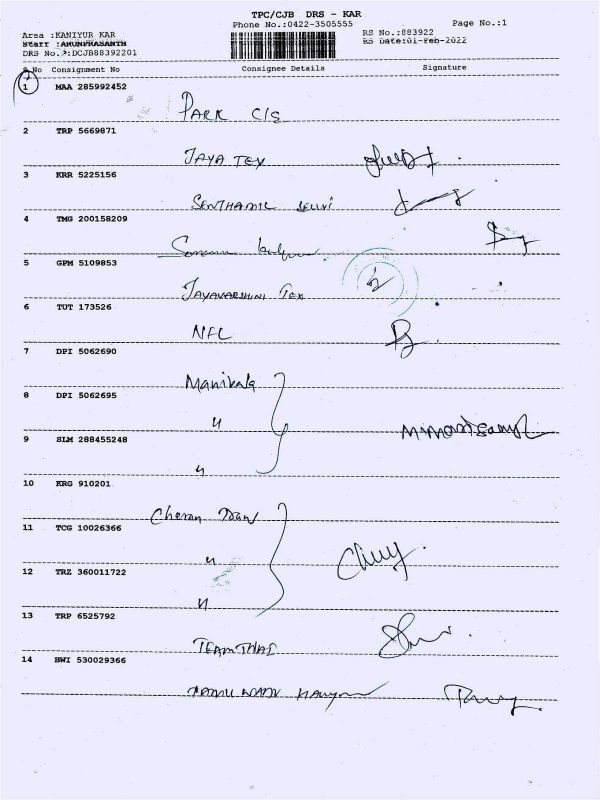 TPC/CJB DRS - KAR
Phone No.:0422-3505555
Page No.:1
Area :KANIYUR KAR
RS No.:883922
Staff :ARUNPRASANTH
RS Date:01-Feb-2022
DRS No.:DCJB88392201
S.No Consignment No Consignee Details Signature
1 MAA 285992452
PARK C/S
2 TRP 5669871
JAYA TEX
3 KRR 5225156
SENTHAMIL SELVI
4 TMG 200158209
5 GPM 5109853
JAYAVARSHINI TEX
6 TUT 173526
NFL
7 DPI 5062690
Manikala
8 DPI 5062695
"
9 SLM 288455248
"
10 KRG 910201
Cheran
11 TCG 10026366
"
12 TRZ 360011722
"
13 TRP 6525792
TEAMTHAI
14 BWI 530029366
TAMIL NADU